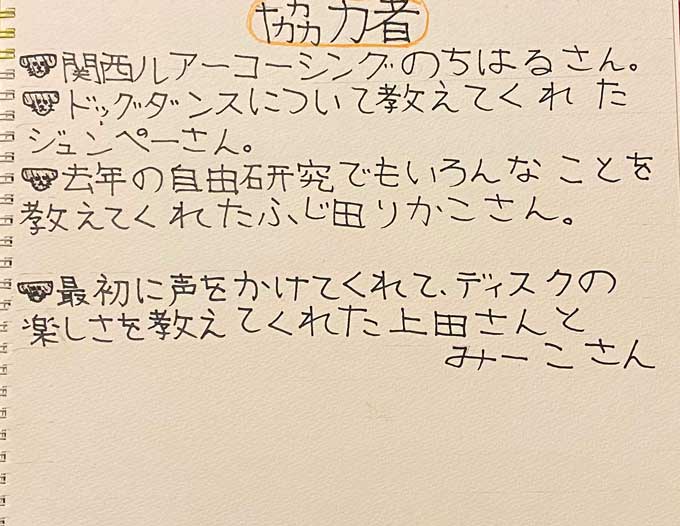 協力者
関西ルアーコーシングのちはるさん。
ドッグダンスについて教えてくれた
ジュンペーさん。
去年の自由研究でもいろんなことを
教えてくれたふじ田りかこさん。
最初に声をかけてくれて、ディスクの
楽しさを教えてくれた上田さんと
みーこさん